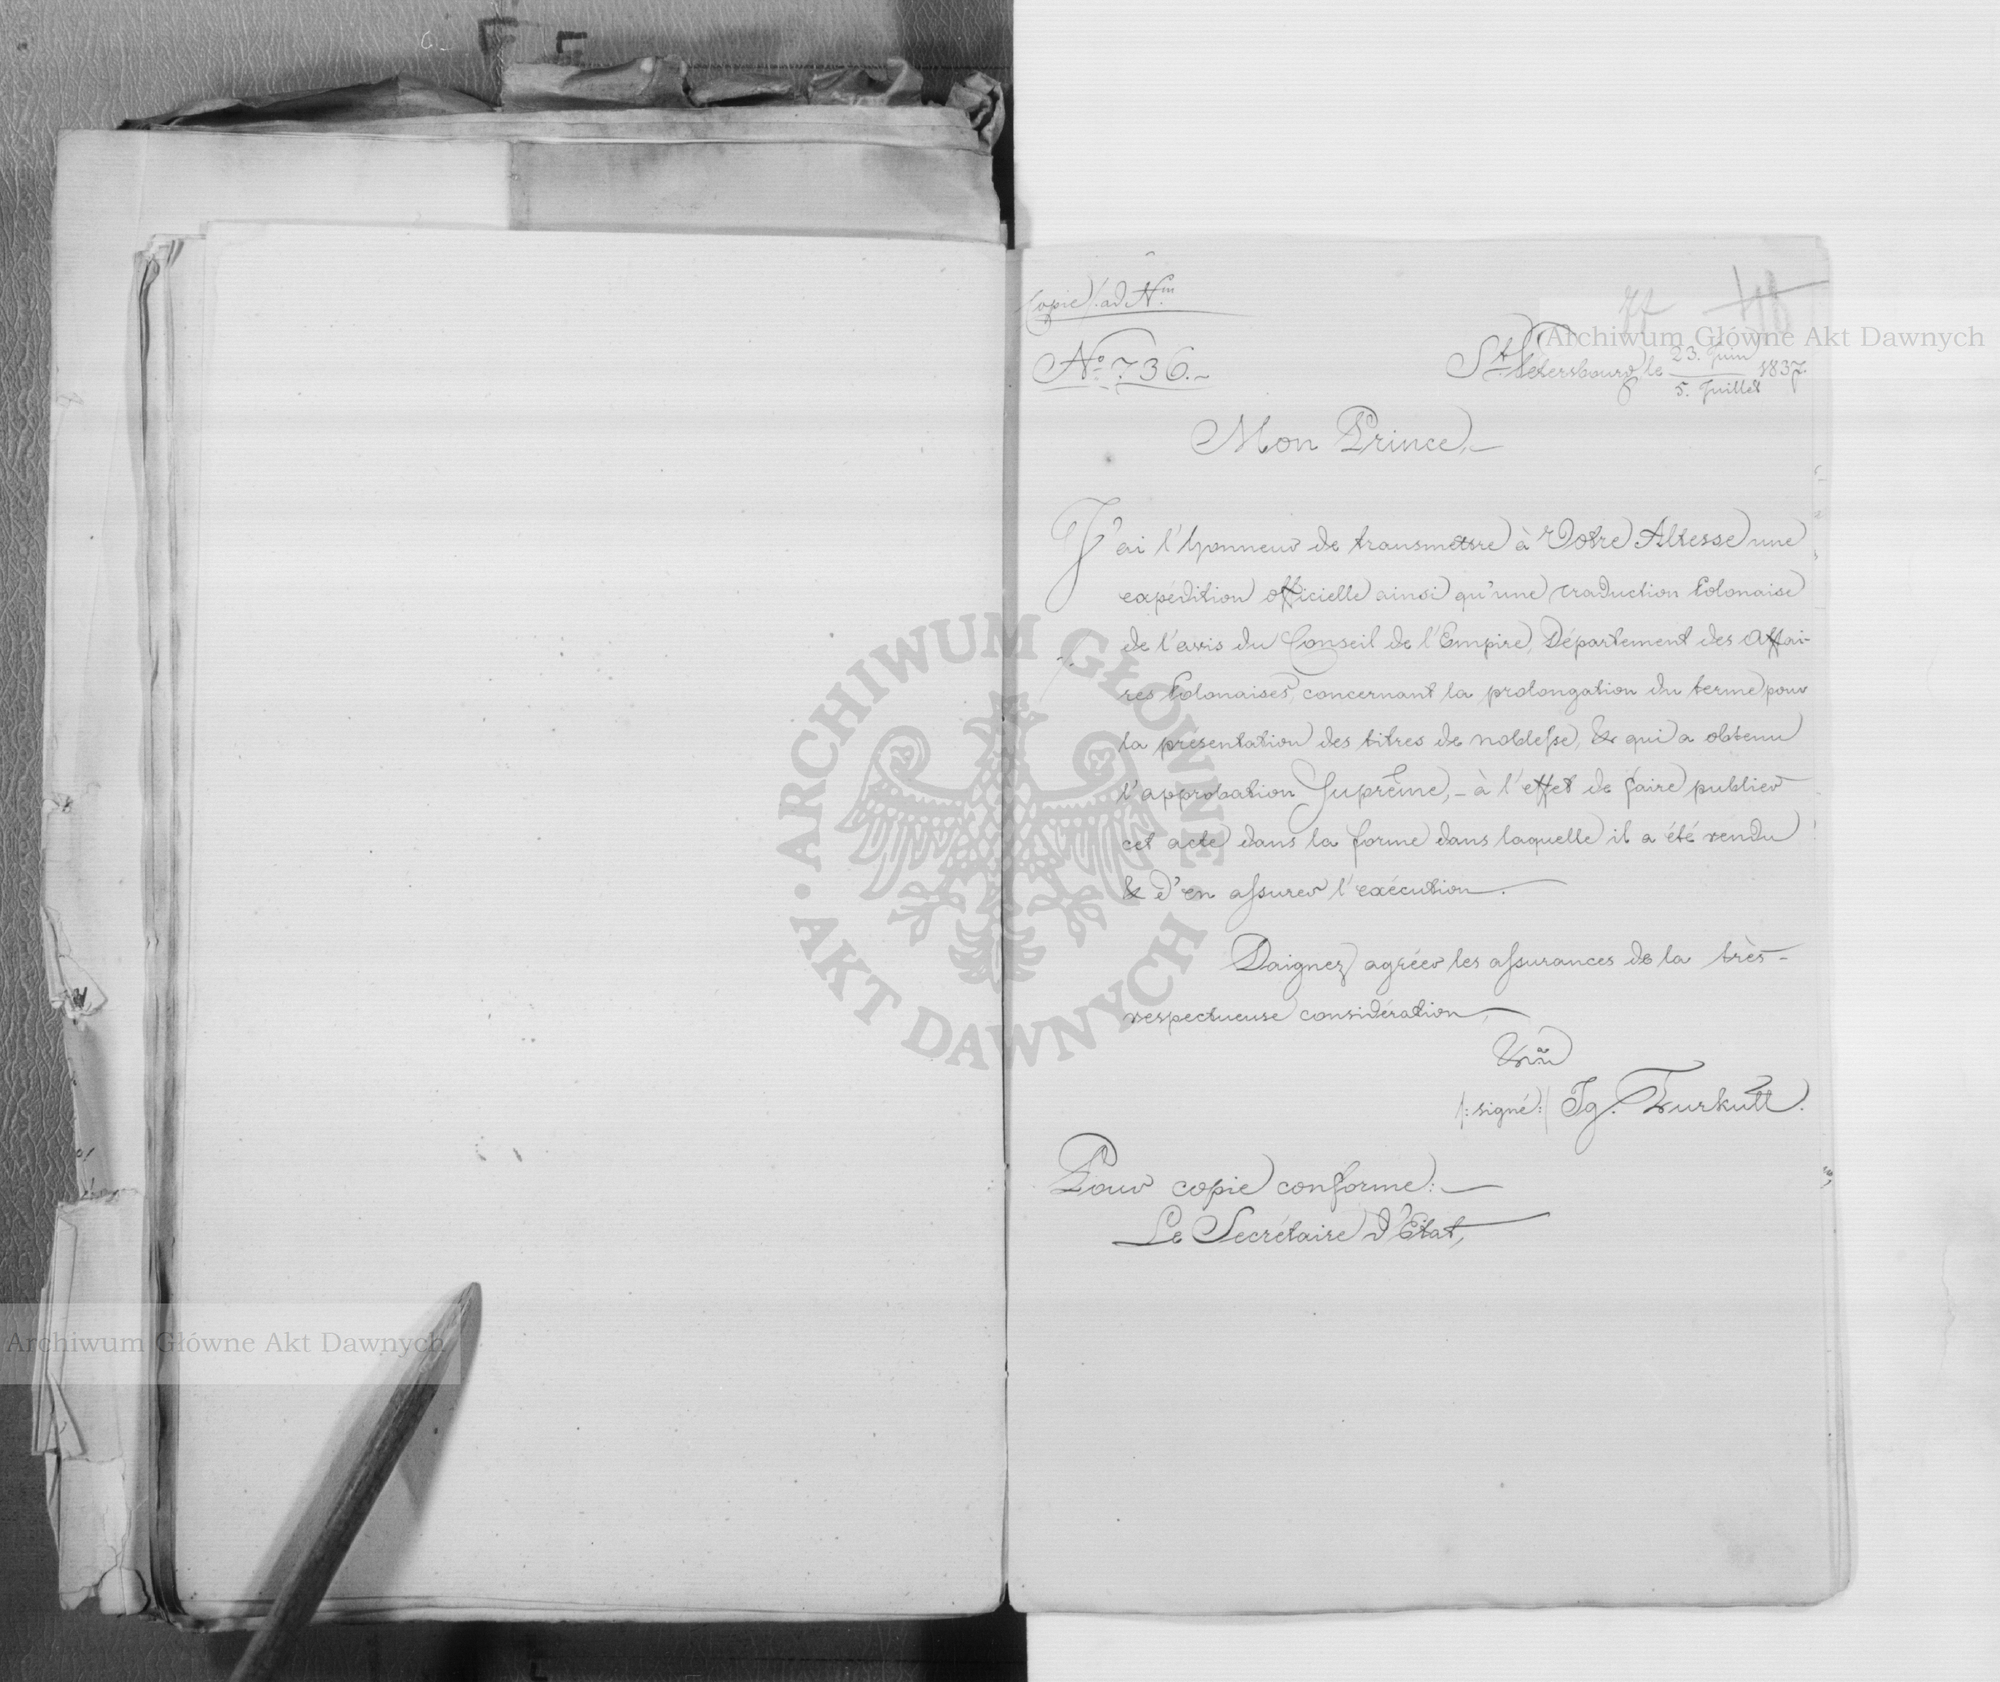 Copie /. ad Nm
77
No 736.
St. Pétersbourg, le 23. Juin / 5. Juillet 1837.
Mon Prince,
J'ai l'honneur de transmettre à Votre Altesse une
expédition officielle ainsi qu'une traduction Polonaise
de l'avis du Conseil de l'Empire, Département des Affai-
res Polonaises, concernant la prolongation du terme pour
la presentation des titres de noblesse, & qui a obtenu
l'approbation Suprême, – à l'effet de faire publier
cet acte dans la forme dans laquelle il a été rendu
& d'en assurer l'exécution.
Daignez agréer les assurances de la très-
respectueuse considération,
/: signé :/ Ig. Turkułł.
Pour copie conforme:
Le Secrétaire d'Etat,
Archiwum Główne Akt Dawnych
ARCHIWUM GŁÓWNE AKT DAWNYCH
Archiwum Główne Akt Dawnych